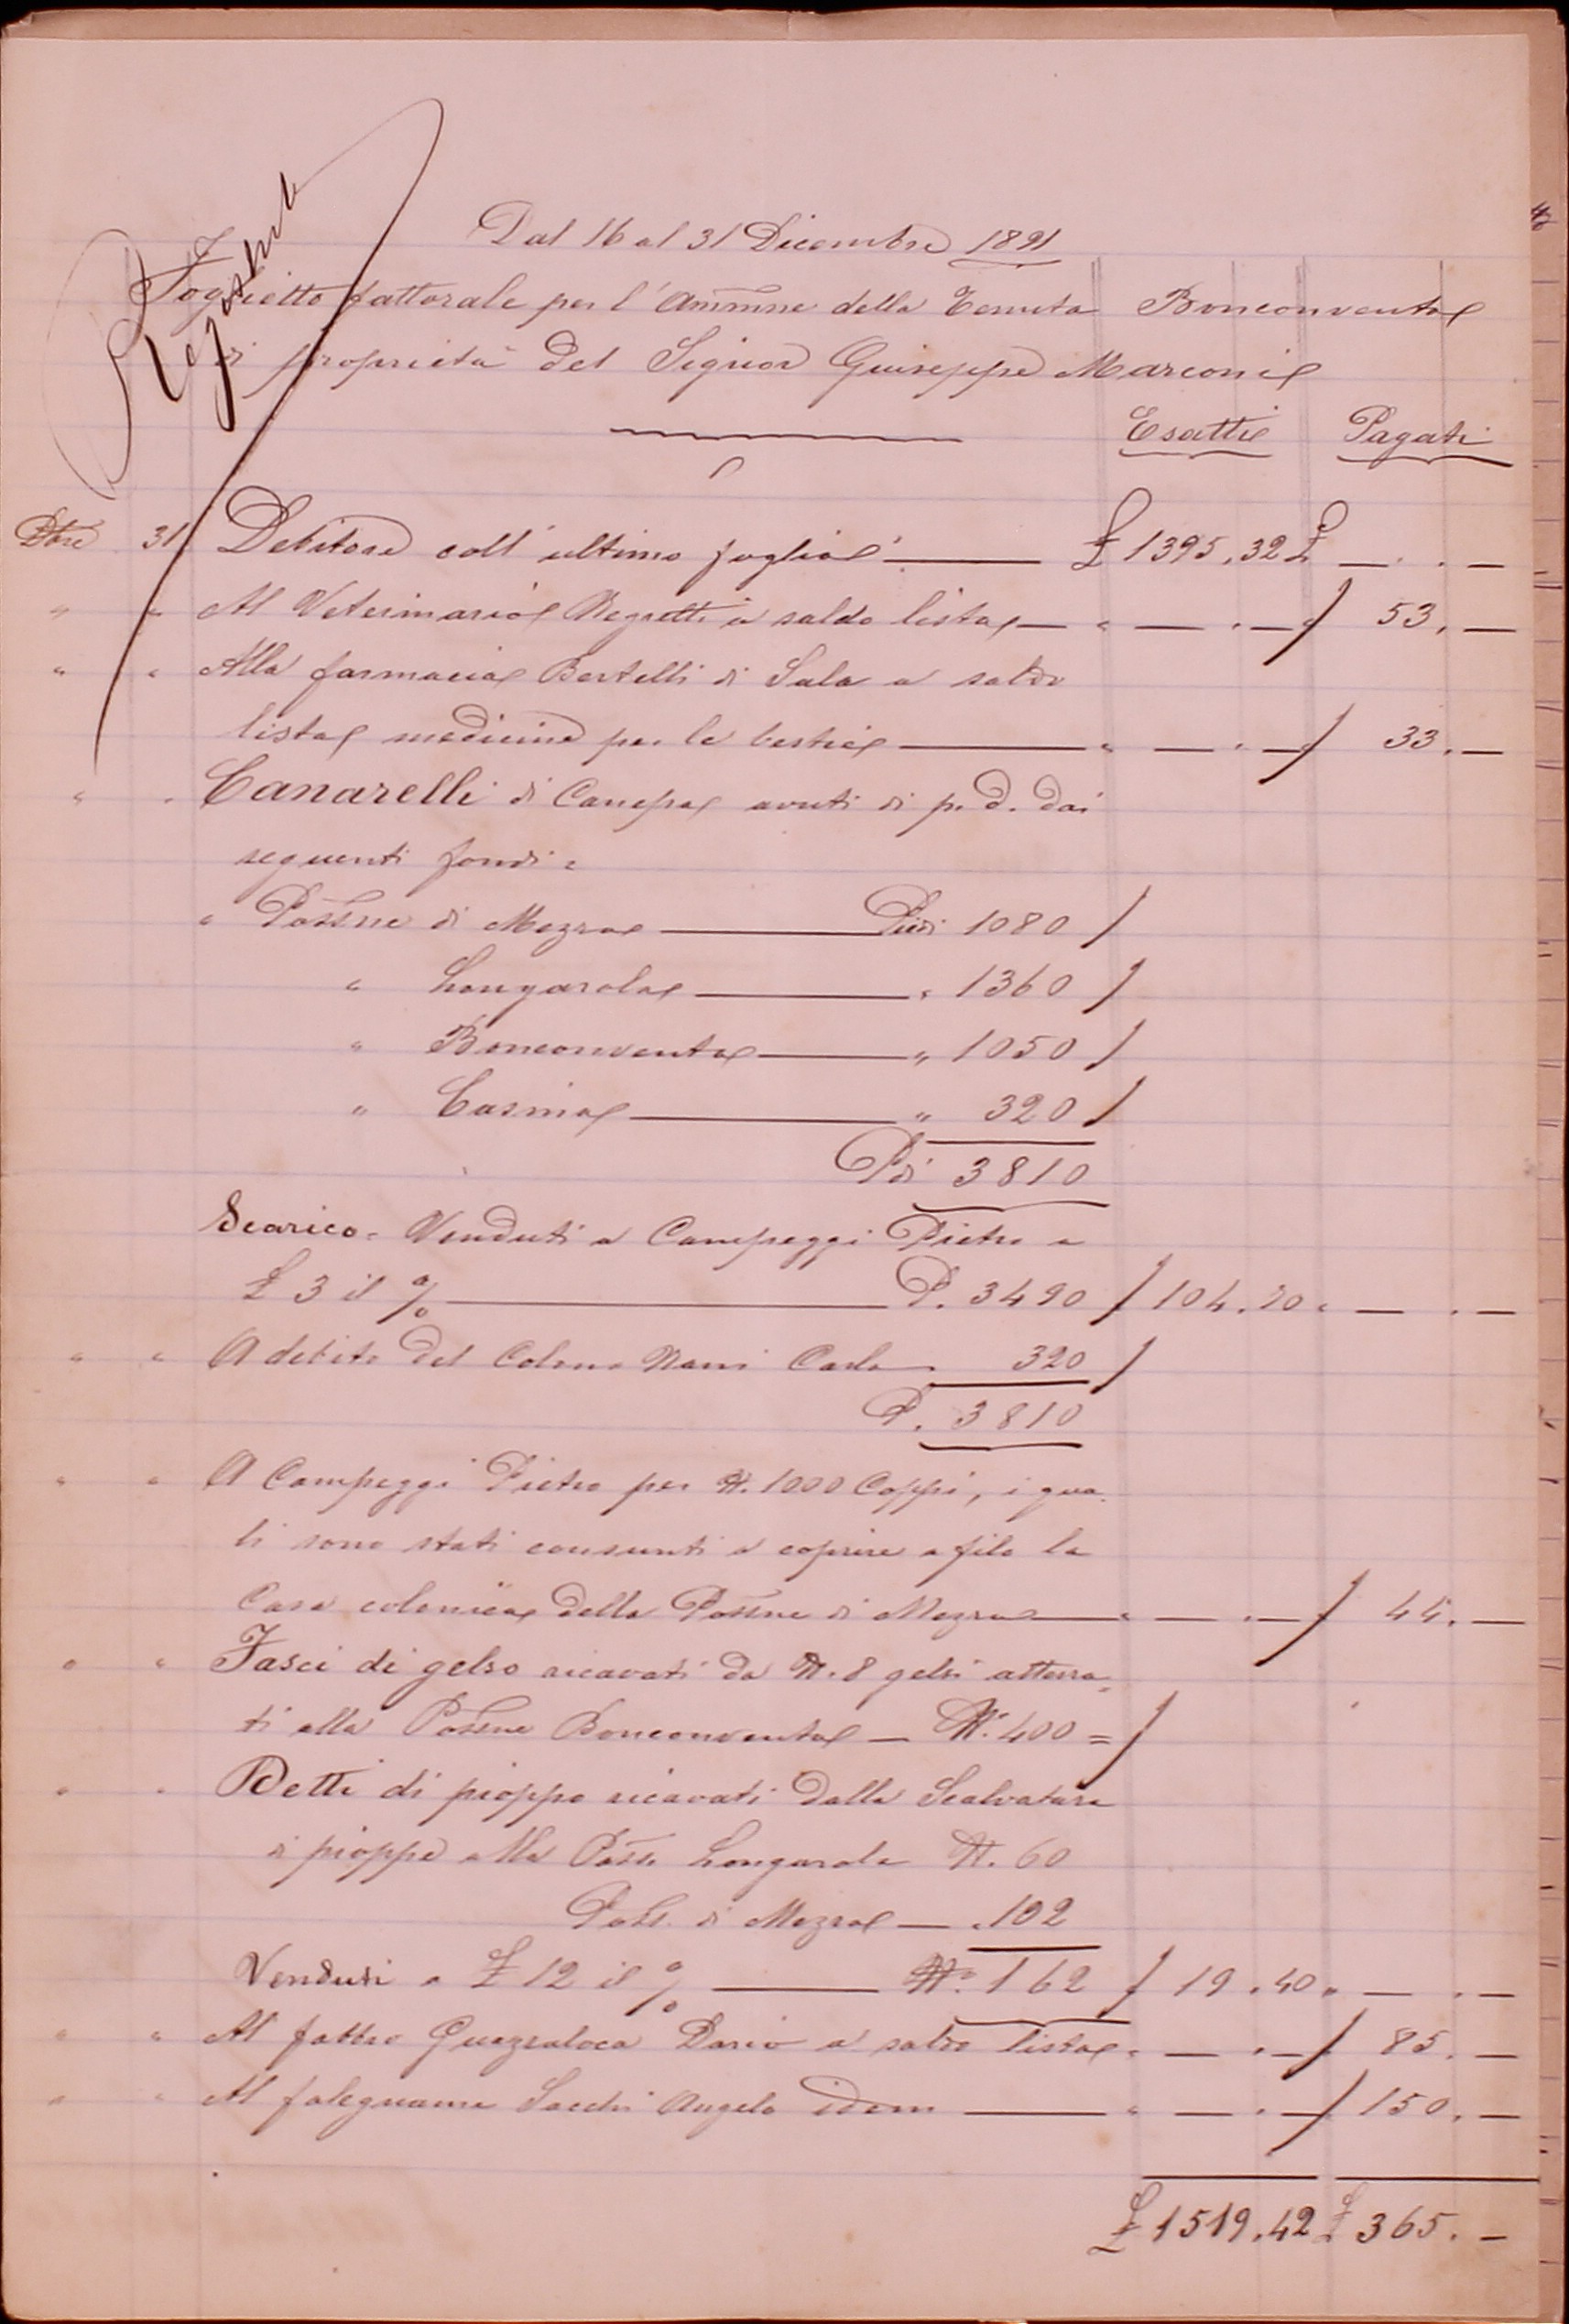 Registrato
Dal 16 al 31 Dicembre 1891
Foglietto fattorale per l'Ammne della Tenuta Bonconvento
di proprietà del Signor Giuseppe Marconi
Esatti Pagati
Dbre 31 Debitore coll'ultimo foglio £ 1395.32 £ — . —
" " Al Veterinario Negretti a saldo lista " — . — 53. —
" " Alla farmacia Bertelli di Sala a saldo
lista medicine per le bestie " — . — 33. —
" " Canarelli di Canepa avuti di p. d. dai
seguenti fondi =
" Possne di Mezzo Piedi 1080
" Longarola " 1360
" Bonconvento " 1050
" Casino " 320
Pdi 3810
Scarico = Venduti a Campeggi Pietro a
£ 3 il % P. 3490 104.70 " — . —
" " A debito del Colono Nanni Carlo " 320
P. 3810
" " A Campeggi Pietro per N. 1000 Coppi, i qua-
li sono stati consunti a coprire a filo la
Casa colonica della Possne di Mezzo " — . — 44. —
" " Fasci di gelso ricavati da N. 8 gelsi atterra=
ti alla Possne Bonconvento — N. 400 =
" " Detti di pioppo ricavati dalla Scalvatura
di pioppe alla Poss. Longarola N. 60
Poss. di Mezzo — " 102
Venduti a £ 12 il % N. 162 19.40 " — . —
" " Al fabbro Guazzaloca Dario a saldo lista " — . — 85. —
" " Al falegname Sacchi Angelo idem " — . — 150. —
£ 1519.42 £ 365. —